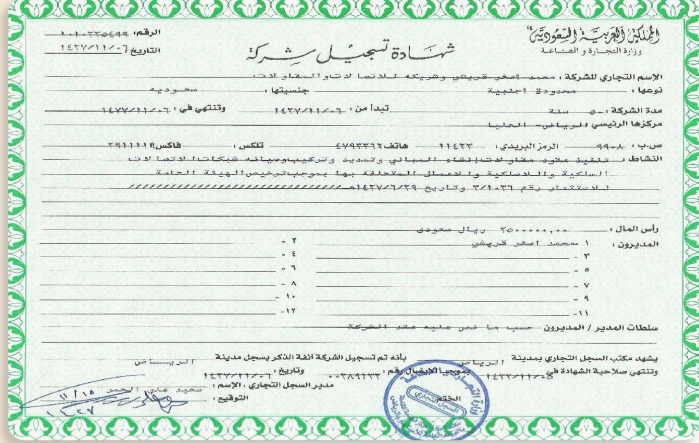 المملكة العربية السعودية
وزارة التجارة والصناعة
شهادة تسجيل شركة
الرقم: ١٠١٠٢٢٥٤٩٩
التاريخ: ١٤٢٧/١١/٠٦
الإسم التجاري للشركة: محمد اصغر قريشي وشريكه للاتصالات والمقاولات
نوعها: محدودة اجنبية جنسيتها: سعوديه
مدة الشركة: ٥٠ سنة تبدأ من: ١٤٢٧/١١/٠٦ وتنتهي في: ١٤٧٧/١١/٠٦
مركزها الرئيسي الرياض - العليا
ص.ب: ٩٩٠٨ الرمز البريدي: ١١٤٢٣ هاتف ٤٧٩٣٣٦٦ تلكس: فاكس ٢٩١١١١٩
النشاط: تنفيذ عقود مقاولات إنشاء المباني وتمديد وتركيب وصيانه شبكات الاتصالات
السلكية واللاسلكية والاعمال المتعلقه بها بموجب ترخيص الهيئة العامة
للاستثمار رقم ٣/١٠٣٦ وتاريخ ١٤٢٧/٦/٢٩هـ
رأس المال: ٢٥٠٠٠٠٠,٠٠ ريال سعودى
المديرون: ١ محمد اصغر قريشي ٢ -
٣ - ٤ -
٥ - ٦ -
٧ - ٨ -
٩ - ١٠ -
١١ - ١٢ -
سلطات المدير / المديرون حسب ما نص عليه عقد الشركة
يشهد مكتب السجل التجاري بمدينة الرياض بأنه تم تسجيل الشركة آنفة الذكر بسجل مدينة الرياض
وتنتهي صلاحية الشهادة في ١٤٣٢/١١/٠٥ بموجب الإيصال رقم: ٠٠٣٨٩١٣٣ وتاريخ: ١٤٢٧/١١/٠٦
مدير السجل التجاري، الإسم: سعيد علي الحمر
الختم: التوقيع:
السجل التجاري